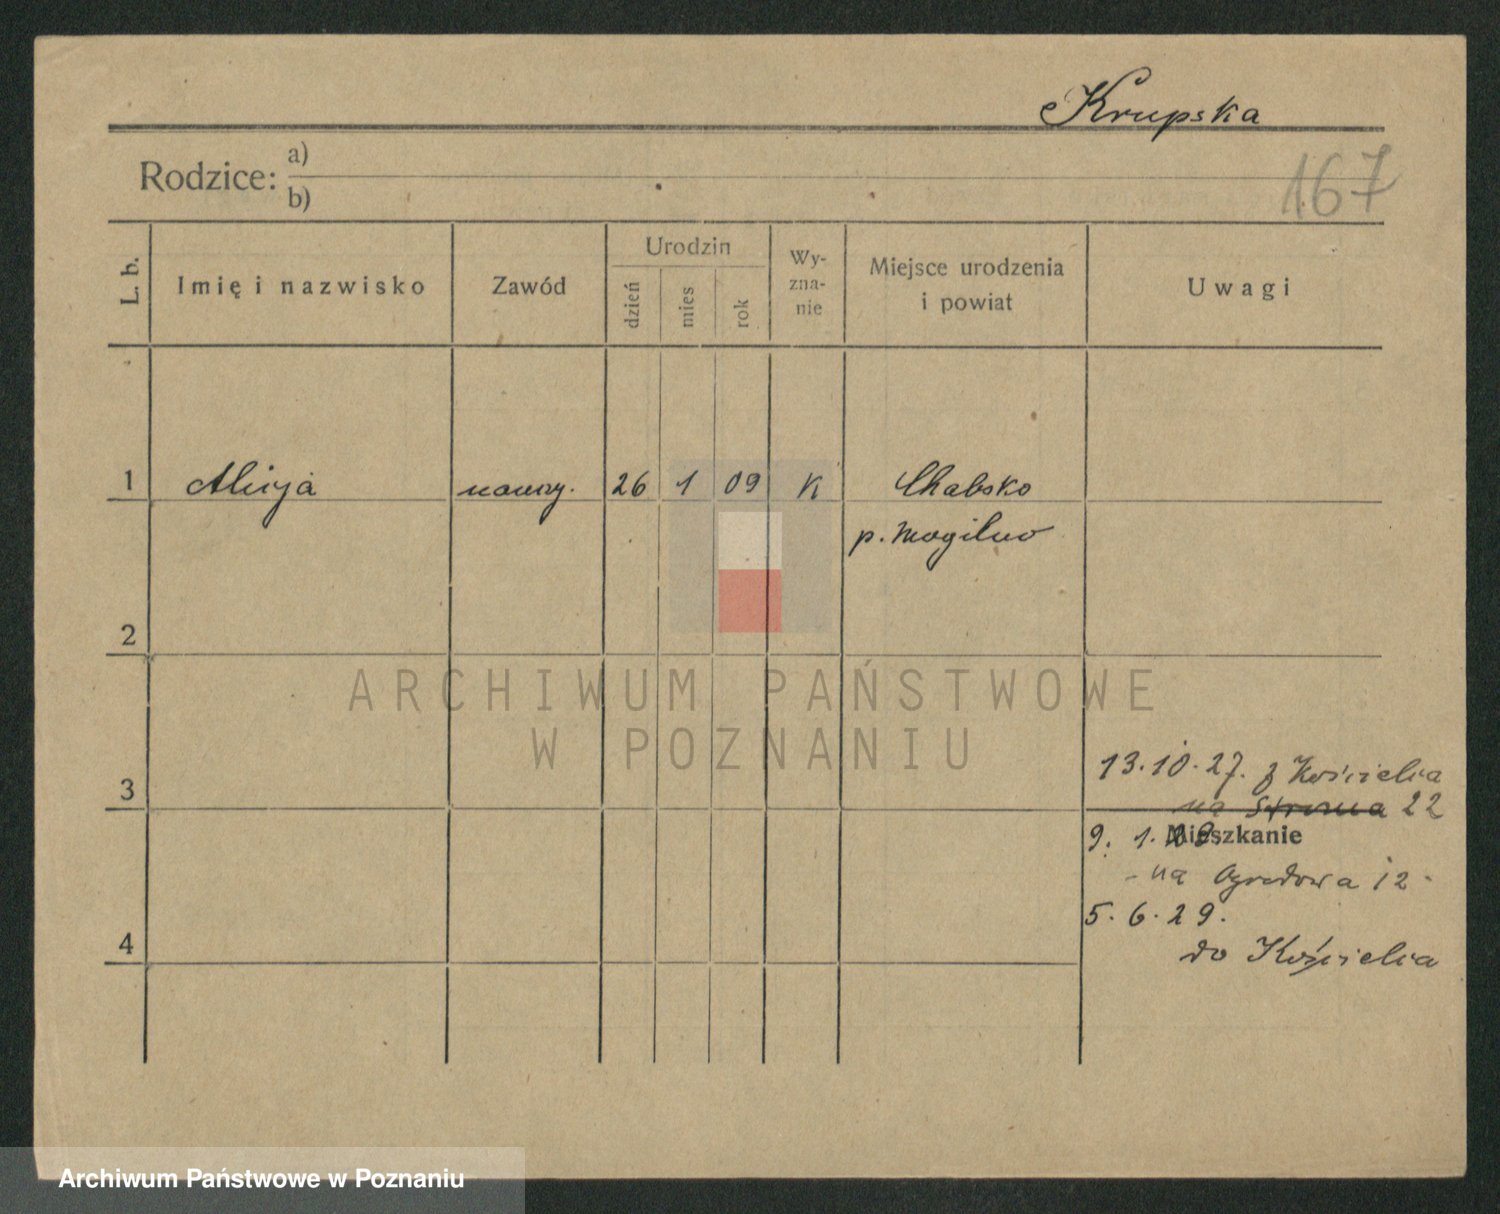 Krupska
Rodzice: a)
b)
167
L. b.
Imię i nazwisko
Zawód
Urodzin
dzień
mies
rok
Wy-
zna-
nie
Miejsce urodzenia
i powiat
Uwagi
1 Alicja nauczy. 26 1 09 K Chabsko
p. Mogilno
2
ARCHIWUM PAŃSTWOWE
W POZNANIU
3
13.10.27. z Kościelca
na Stroma 22
Mieszkanie
9. 1. 28.
- na Ogrodowa 12 -
5. 6. 29.
4
do Kościelca
Archiwum Państwowe w Poznaniu